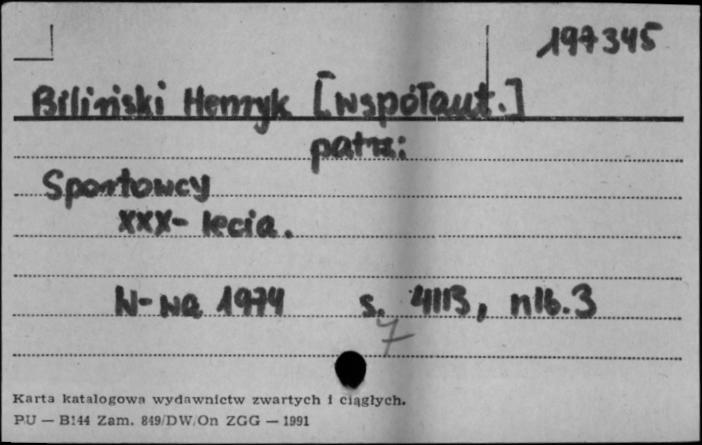 197345
Biliński Henryk [współaut.]
patrz:
Sportowcy
XXX-lecia.
W-wa 1974 s. 4113, nlb. 3
7
Karta katalogowa wydawnictw zwartych i ciągłych.
PU — B144 Zam. 849/DW/On ZGG — 1991